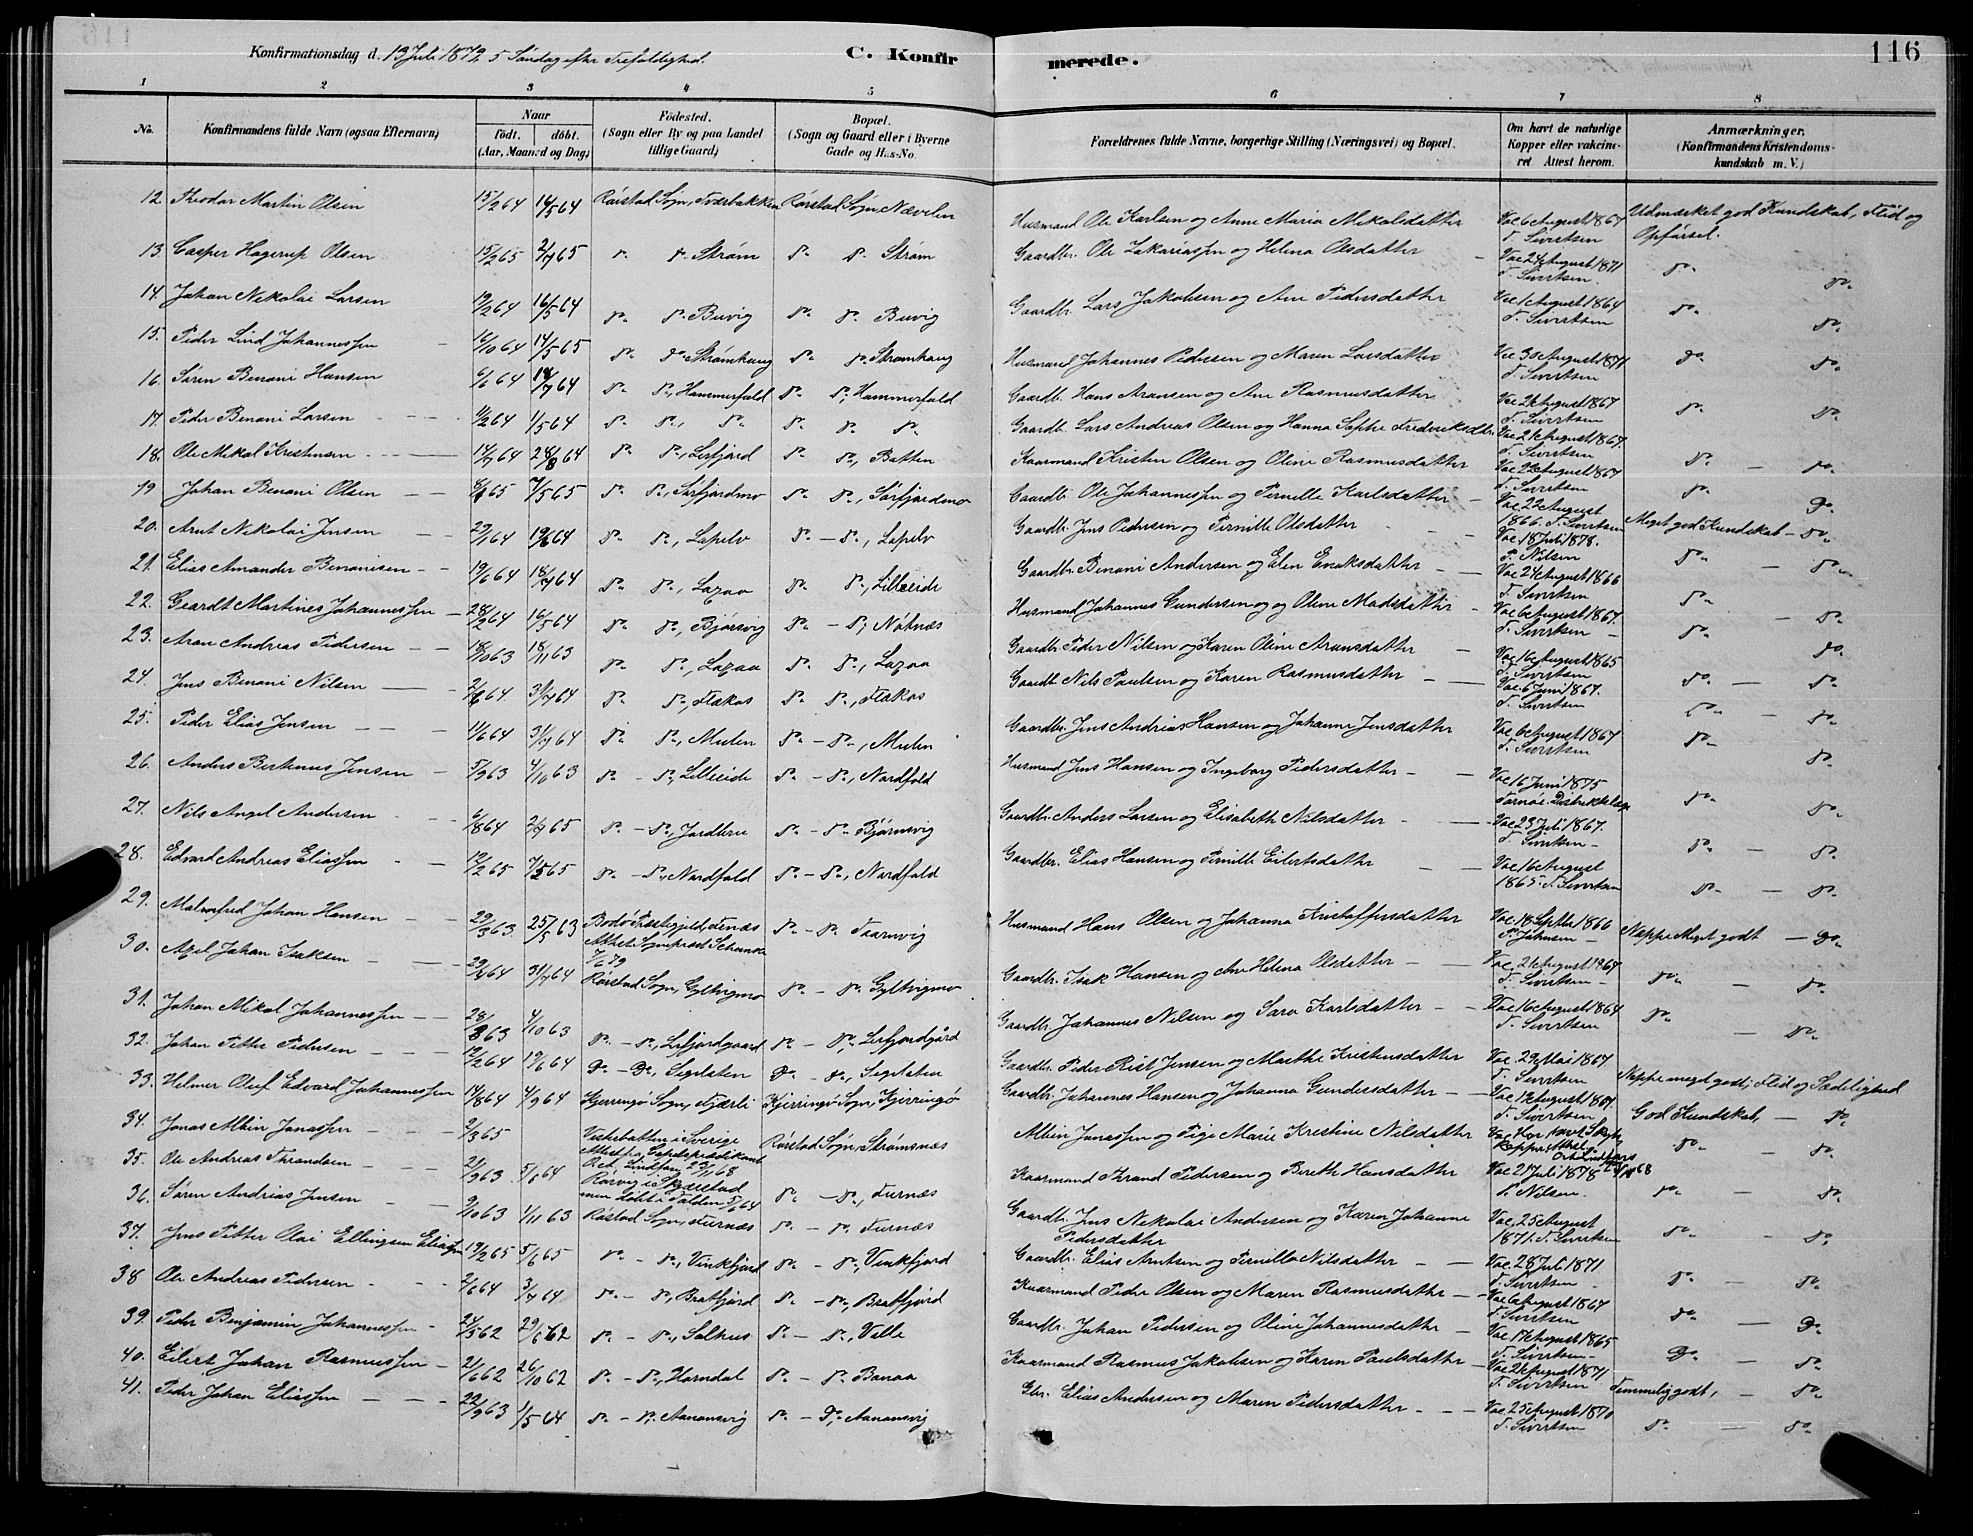 116
Konfirmationsdag d. 13 Juli 1879, 5 Søndag efter Trefoldighed.
C. Konfirmerede.
1 2 3 4 5 6 7 8
No. Konfirmandens fulde Navn (ogsaa Efternavn) Naar født. døbt. (Aar, Maaned og Dag.) Fødested. (Sogn eller By og paa Landet tillige Gaard) Bopæl. (Sogn og Gaard eller i Byerne Gade og Hus-No. Forældrenes fulde Navne, borgerlige Stilling (Næringsvei) og Bopæl. Om havt de naturlige Kopper eller vakcineret. Attest herom. Anmærkninger. (Konfirmandens Kristendomskundskab m. V.)
12. Theodor Martin Olsen 15/2 64 16/5 64 Rørstad Sogn, Tverbakken Rørstad Sogn, Nævelen Husmand Ole Karlsen og Anne Maria Mikalsdatter Vac. 6 August 1867 T. Sivertsen Udmærket god Kundskab, Flid og Opførsel.
13. Casper Hagerup Olsen 15/2 65 2/7 65 do do Strøm do do Strøm Gaardbr. Ole Zakariassen og Helena Olsdatter Vac. 24 August 1871 T. Sivertsen do do
14. Johan Nikolai Larsen 19/2 64 16/5 64 do do Buvig do do Buvig Gaardbr. Lars Jakobsen og Ane Pedersdatter Vac. 1 August 1864 T. Sivertsen do do
15. Peder Lind Johannessen 16/10 64 14/5 65 do do Strømhaug do do Strømhaug Husmand Johannes Pedersen og Maren Larsdatter Vac. 30 August 1871 T. Sivertsen do do
16. Søren Benoni Hansen 6/6 64 do do, Hammerfald do do, Hammerfald Gaardbr. Hans Aronsen og Ane Rasmusdatter Vac. 21 August 1867 T. Sivertsen do do
17. Peder Benoni Larsen 1/5 64 do do, do do do do Gaardbr. Lars Andreas Olsen og Hanna Sophie Fredriksdtr. Vac. 21 August 1867 T. Sivertsen
18. Ole Mikal Kristensen 14/7 64 28/8 64 do do, Lerfjord do do, Botten Kaarmand Kristen Olsen og Oline Rasmusdatter Vac. 21 August 1867 T. Sivertsen do do
19 Johan Benoni Olsen 7/5 65 do do, Sørfjordmo do do, Sørfjordmo Gaardbr. Ole Johannessen og Pernille Karlsdatter Vac. 22 August 1866. T. Sivertsen do do
20. Arnt Nikolai Jensen 29/1 64 do do, Lapelv do do, Lapelv Gaardbr. Jens Pedersen og Pernille Olsdatter Vac. 18 Juli 1878. P. Nilsen Meget god Kundskab do
21. Elias Amandor Benonisen 19/6 64 18/7 64 do do, Laxaa do do, Lilleeide Gaardbr. Benoni Andersen og Elen Enoksdatter Vac. 24 August 1866 T. Sivertsen do do
22. Geardt Martines Johannessen 28/2 64 16/5 64 do do, Bjørsvig do do, Nøtnæs Husmand Johannes Gundersen og og Oline Madsdatter Vac. 6 August 1867. T. Sivertsen do do
23. Aron Andreas Pedersen 18/10 63 18/11 63 do do, Laxaa do do, Laxaa Gaardbr. Peder Nilsen og Karen Oline Aronsdatter Vac. 16 August 1865 T. Sivertsen do do
24. Jens Benoni Nilsen 31/7 64 do do, Flakas do do, Flakas Gaardbr. Nils Paulsen og Karen Rasmusdatter Vac. 6 Juni 1867. T. Sivertsen do do
25. Peder Elias Jensen 11/6 64 31/7 64 do do, Mulen do do, Mulen Gaardbr. Jens Andreas Hansen og Johanne Jensdatter Vac. 6 August 1867 T. Sivertsen do do
26. Anders Bertinus Jensen 5/9 63 4/10 63 do do, Lilleeide do do, Nordfold Husmand Jens Hansen og Ingeborg Pedersdatter Vac. 16 Juni 1875 do do
27. Nils Angel Andersen 6/8 64 2/7 65 do do, Jordbru do do Bjørnsvig Gaardbr. Anders Larsen og Elisabeth Nilsdatter Vac. 23 Juli 1867. T. Sivertsen do do
28. Edvard Andreas Eliassen 12/2 65 7/5 65 do do, Nordfold do do, Nordfold Gaardbr. Elias Hansen og Pernille Eilertsdatter Vac. 16 August 1865. T. Sivertsen do do
29. Malmfred Johan Hansen 29/3 63 25/5 63 Bodø Præstegjeld, do do Faarvig Husmand Hans Olsen og Johanna Kristoffersdatter Vac. 18 Septbr 1866 Neppe Meget godt do
30. Axel Johan Isaksen 29/4 64 31/7 64 Rørstad Sogn, Gyltvigmo do do Gyltvigmo Gaardbr. Isak Hansen og Ane Helena Olsdatter Vac. 21 August 1867 T. Sivertsen do do
31. Johan Mikal Johannessen 4/10 63 do do, Lerfjordgaard do do, Lerfjordgård Gaardbr. Johannes Nilsen og Sara Karlsdatter Vac. 16 August 1864 T. Sivertsen do do
32. Johan Petter Pedersen 12/2 64 19/6 64 do do, Segelsten do do, Segelsten Gaardbr. Peder Rist Jensen og Marthe Kristensdatter Vac. 29 Mai 1867 T. Sivertsen Neppe meget godt; Flid og Sædelighed
33. Helmer Oluf Edvard Johannessen 14/8 64 4/9 64 Kjerringø Sogn, Fjærli Kjerringø Sogn, Kjerringø Gaardbr. Johannes Hansen og Johanna Gundersdatter Vac. 12 August 1867. T. Sivertsen God Kundskab, do
34. Jonas Albin Jonassen 9/3 65 Vesterbotten i Sverige Rørstad Sogn, Strømsnæs Albin Jonassen og Pige Marie Kristine Nilsdatter do do
35. Ole Andreas Thrandsen 21/9 63 5/6 64 Rørvig i Skjerstad men døbt i Folden 5/6 64 do do, Furnæs Kaarmand Thrand Pedersen og Bereth Hansdatter Vac. 21 Juli 1878 P. Nilsen. do do
36. Søren Andreas Jensen 9/10 63 1/11 63 Røstad Sogn, Furnæs do do Furnæs Gaardbr. Jens Nikolai Andersen og Karen Johanne Pedersdatter Vac. 25 August 1871. T. Sivertsen do do
37. Jens Petter Olai Ellingsen Eliassen 19/2 65 5/6 65 do do, Vinkfjord do do, Vinkfjord Gaardbr. Elias Arntsen og Pernilla Nilsdatter Vac. 28 Juli 1871 T. Sivertsen do do
38 Ole Andreas Pedersen 2/6 64 3/7 64 do do, Bratfjord do do, Bratfjord Kaarmand Peder Olsen og Maren Rasmusdatter Vac. 6 August 1867 T. Sivertsen do do
39. Peder Benjamin Johannessen 24/5 62 29/6 62 do do, Salhus do do, Valle Gaardbr. Johan Pedersen og Oline Johannesdatter Vac. 17 August 1865 T. Sivertsen do do
40. Eilert Johan Rasmussen 21/6 62 26/10 62 do do, Horndal do do Bonaa Kaarmand Rasmus Jakobsen og Karen Paulsdatter Vac. 21 August 1871 T. Sivertsen Temmelig godt, do
41. Peder Johan Eliassen 22/9 63 1/5 64 do do, Aanonsvig do do, Aanonsvig Gbr. Elias Andersen og Maren Pedersdatter Vac. 25 August 1870 T. Sivertsen do do